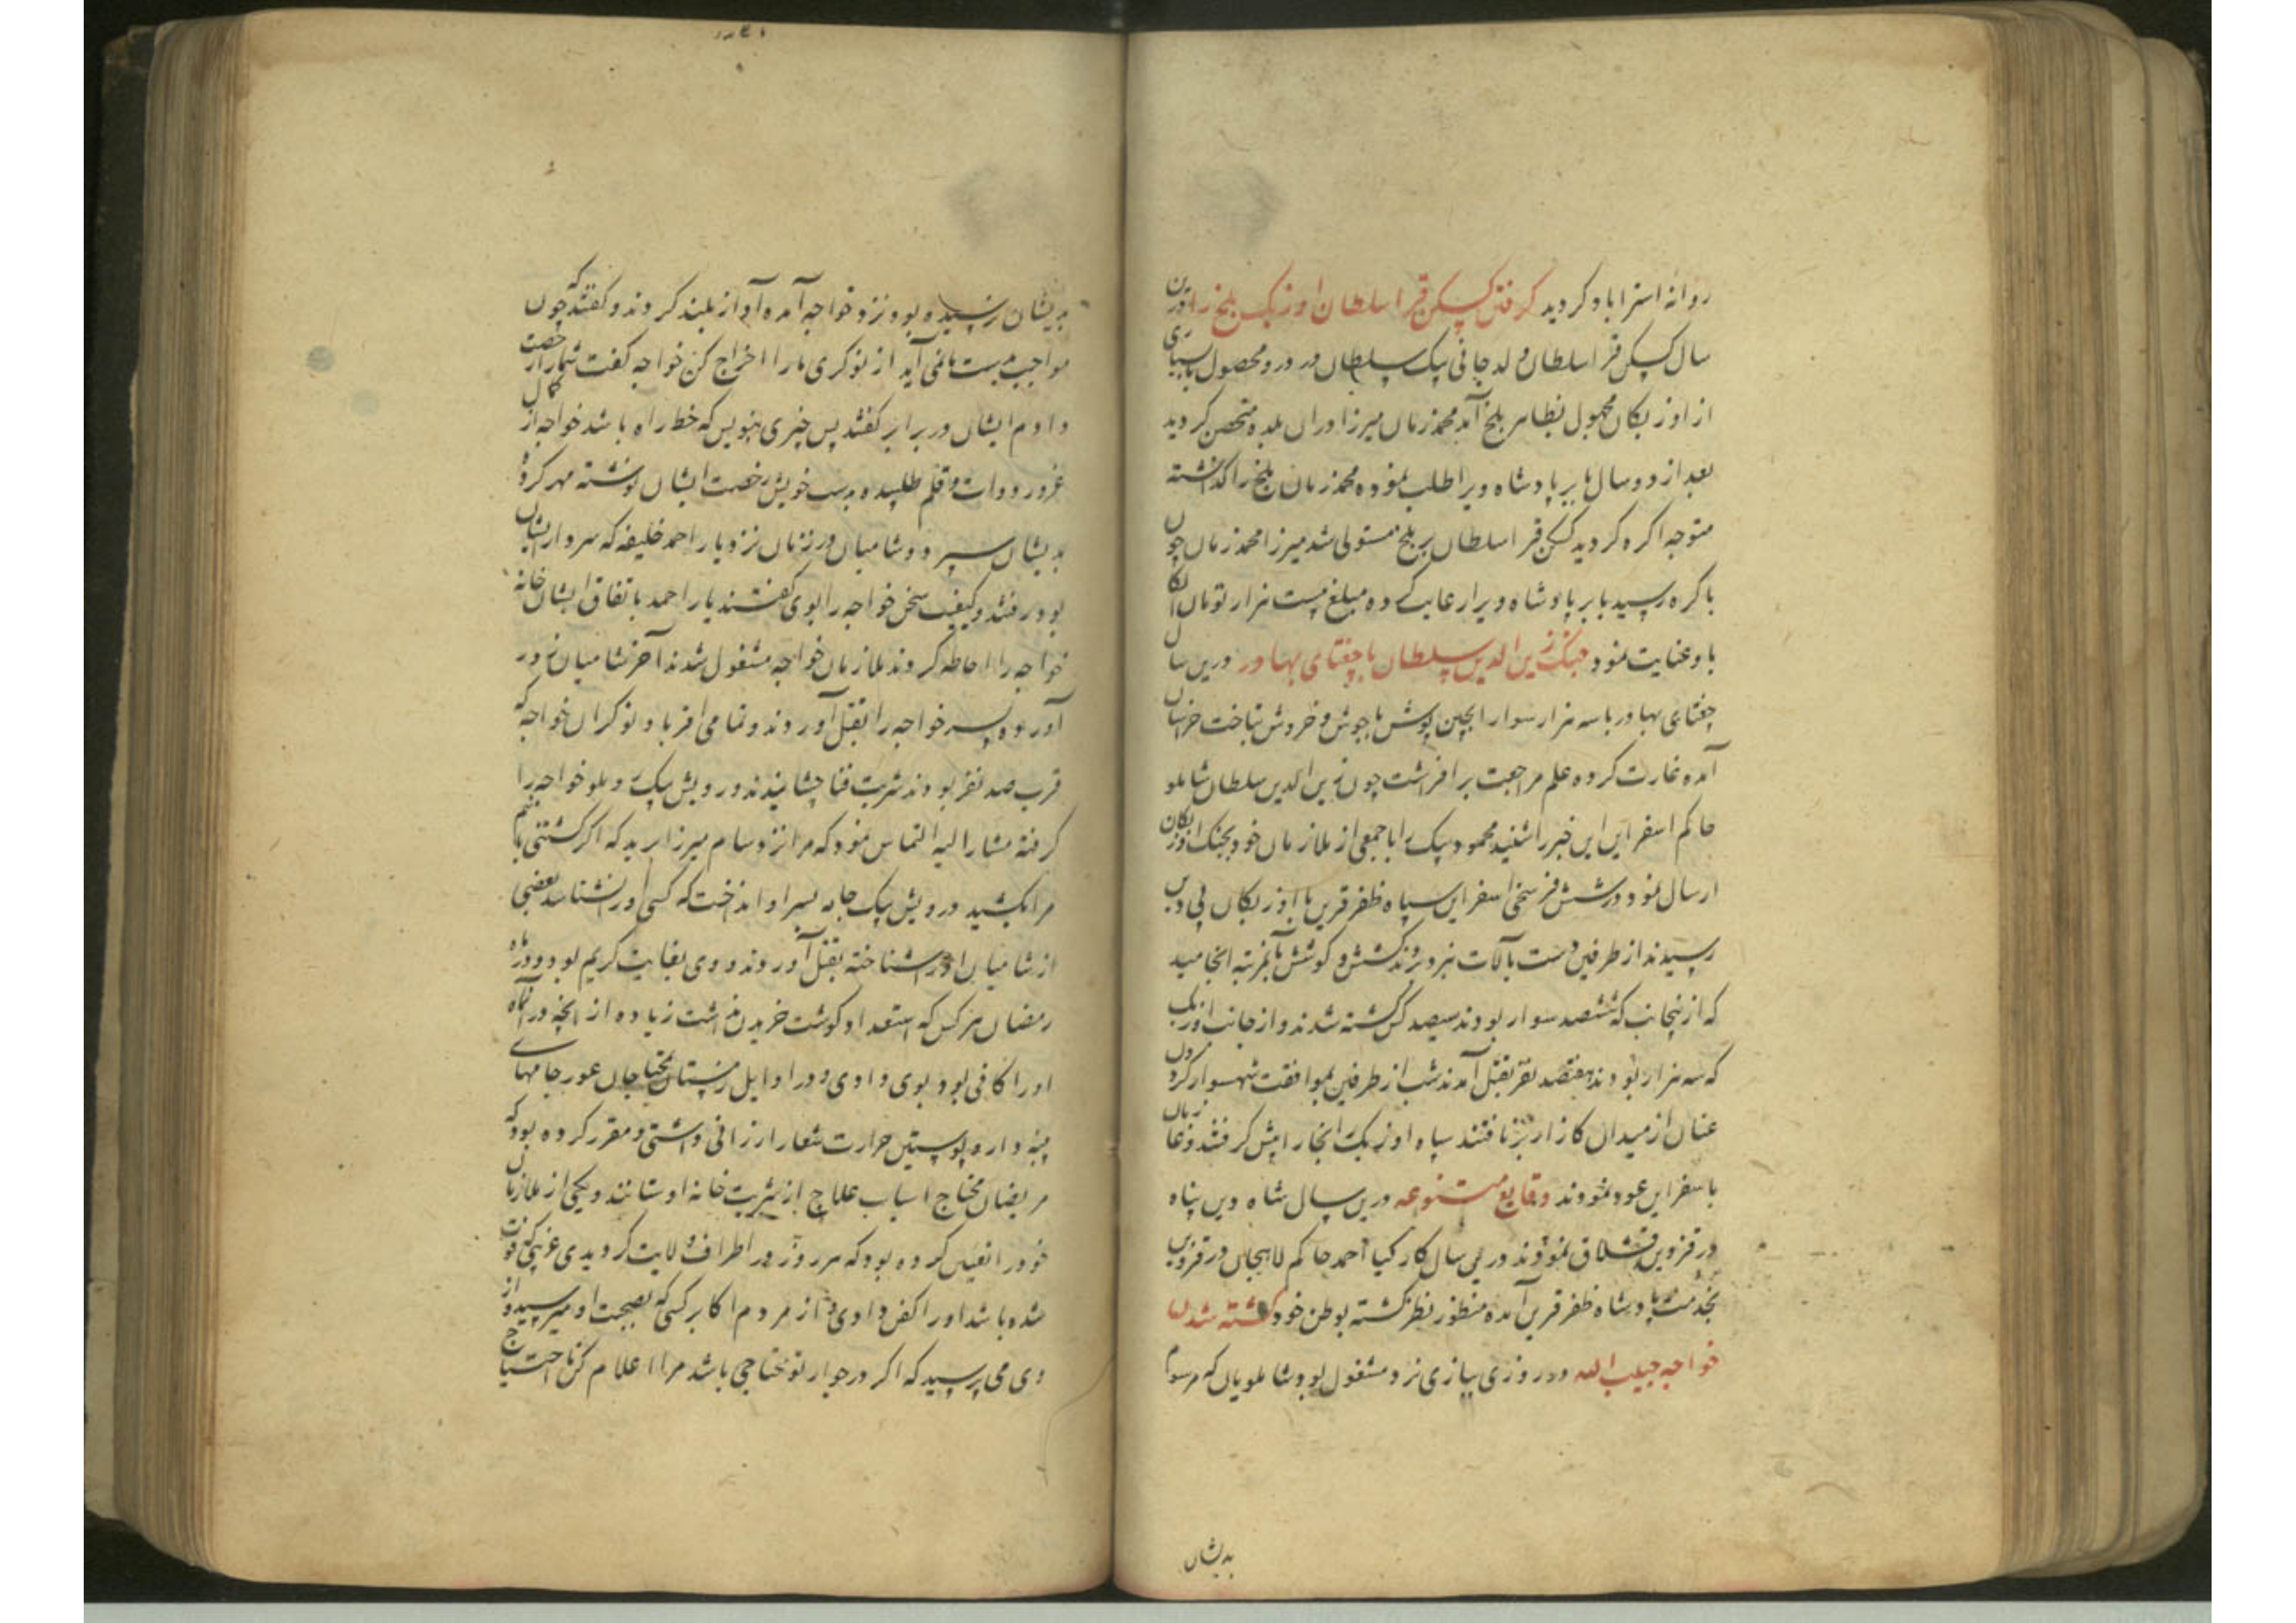 روانه استراباد کردید کرفتن کسکن قرا سلطان اوزبک بلخ را درین
سال کسکن قرا سلطان ولد جانی بیک سلطان در درو محصول با سپاهی
از اوزبکان مجهول بظاهر بلخ آمد محمد زمان میرزا دران بلده متحصن کردید
بعد از دو سال بابر پادشاه ویرا طلب نموده محمد زمان بلخ را کذاشته
متوجه اکره کردید کسکن قرا سلطان بر بلخ مستولی شد میرزا محمد زمان چون
باکره رسید بابر پادشاه ویرا رعایت کرده مبلغ بیست هزار تومان الکا
باو عنایت نمود جنک زین الدین سلطان با چغتای بهادر درین سال
چغتای بهادر با سه هزار سوار الجین پوش با جوش و خروش بتاخت خراسان
آمده غارت کرده علم مراجعت برافراشت چون زین الدین سلطان شاملو
حاکم اسفراین این خبر را شنید محمود بیک را با جمعی از ملازمان خود بجنک اوزبکان
ارسال نمود در شش فرسخی اسفراین سپاه ظفر قرین با اوزبکان بی دین
رسیدند از طرفین دست بآلات نبرد بردند کشش و کوشش بآنمرتبه انجامید
که ازینجانب که ششصد سوار بودند سیصد کس کشته شدند و از جانب اوزبک
که سه هزار بودند هفتصد نفر بقتل آمدند شب از طرفین بموافقت شهسوار کردون
عنان از میدان کارزار برتافتند سپاه اوزبک بخارا پیش کرفتند و غازیان
باسفراین عود نمودند وقایع متنوعه درین سال شاه دین پناه
در قزوین قشلاق نمودند درین سال کارکیا احمد حاکم لاهیجان در قزوین
بخدمت پادشاه ظفر قرین آمده منظور نظر کشته بوطن خود کشته شدن
خواجه حبیب الله در روزی ببازی نرد مشغول بود شاملویان که مرسوم
بدیشان
بدیشان نرسیده بود نزد خواجه آمده آواز بلند کردند و کفتند که چون
مواجب بدست ما نمی آید از نوکری ما را اخراج کن خواجه کفت شما را رخصت
دادم ایشان در برابر کفتند پس چیزی بنویس که خط راه باشد خواجه از کمال
غرور دوات و قلم طلبیده بدست خویش رخصت ایشان نوشته مهر کرده
بدیشان سپرد و شامیان در زمان نزد یار احمد خلیفه که سردار ایشان
بود رفتند و کیفیت سخن خواجه را بوی کفتند یار احمد باتفاق ایشان خانه
خواجه را احاطه کردند ملازمان خواجه مشغول شدند آخر شامیان زور
آورده پسر خواجه را بقتل آوردند و تمامی اقربا و نوکران خواجه که
قرب صد نفر بودند شربت فنا چشانیدند درویش بیک روملو خواجه را
کرفته مشار الیه التماس نمود که مرا نزد سام میرزا برید که اکر کشتنی باشم
مرا بکشید درویش بیک جامه بسر او انداخت که کسی او را نشناسد بعضی
از شامیان او را شناخته بقتل آوردند و وی بغایت کریم بود و در ماه
رمضان هر کس که استعداد کوشت خریدن نداشت زیاده از آنچه در آنماه
او را کافی بود بوی دادی و در اوایل زمستان محتاجان عور جامهای
پنبه دار و پوستین حرارت شعار ارزانی داشتی و مقرر کرده بود که
مریضان محتاج اسباب علاج از شربت خانه او ستانند و یکی از ملازمان
خود را تعیین کرده بود که هر روز در اطراف ولایت کردیدی غریبی که فوت
شده باشد او را کفن دادی و از مردم اکابر کسی که بصحبت او میرسید از
وی می پرسید که اکر در جوار تو محتاجی باشد مرا اعلام کن تا احتیاج